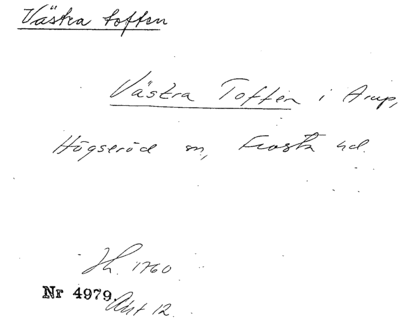 Västra toften
Västra Toften i Arup,
Högseröd sn, Frosta hd.
Sk. 1760
Nr 4979. Akt 12.